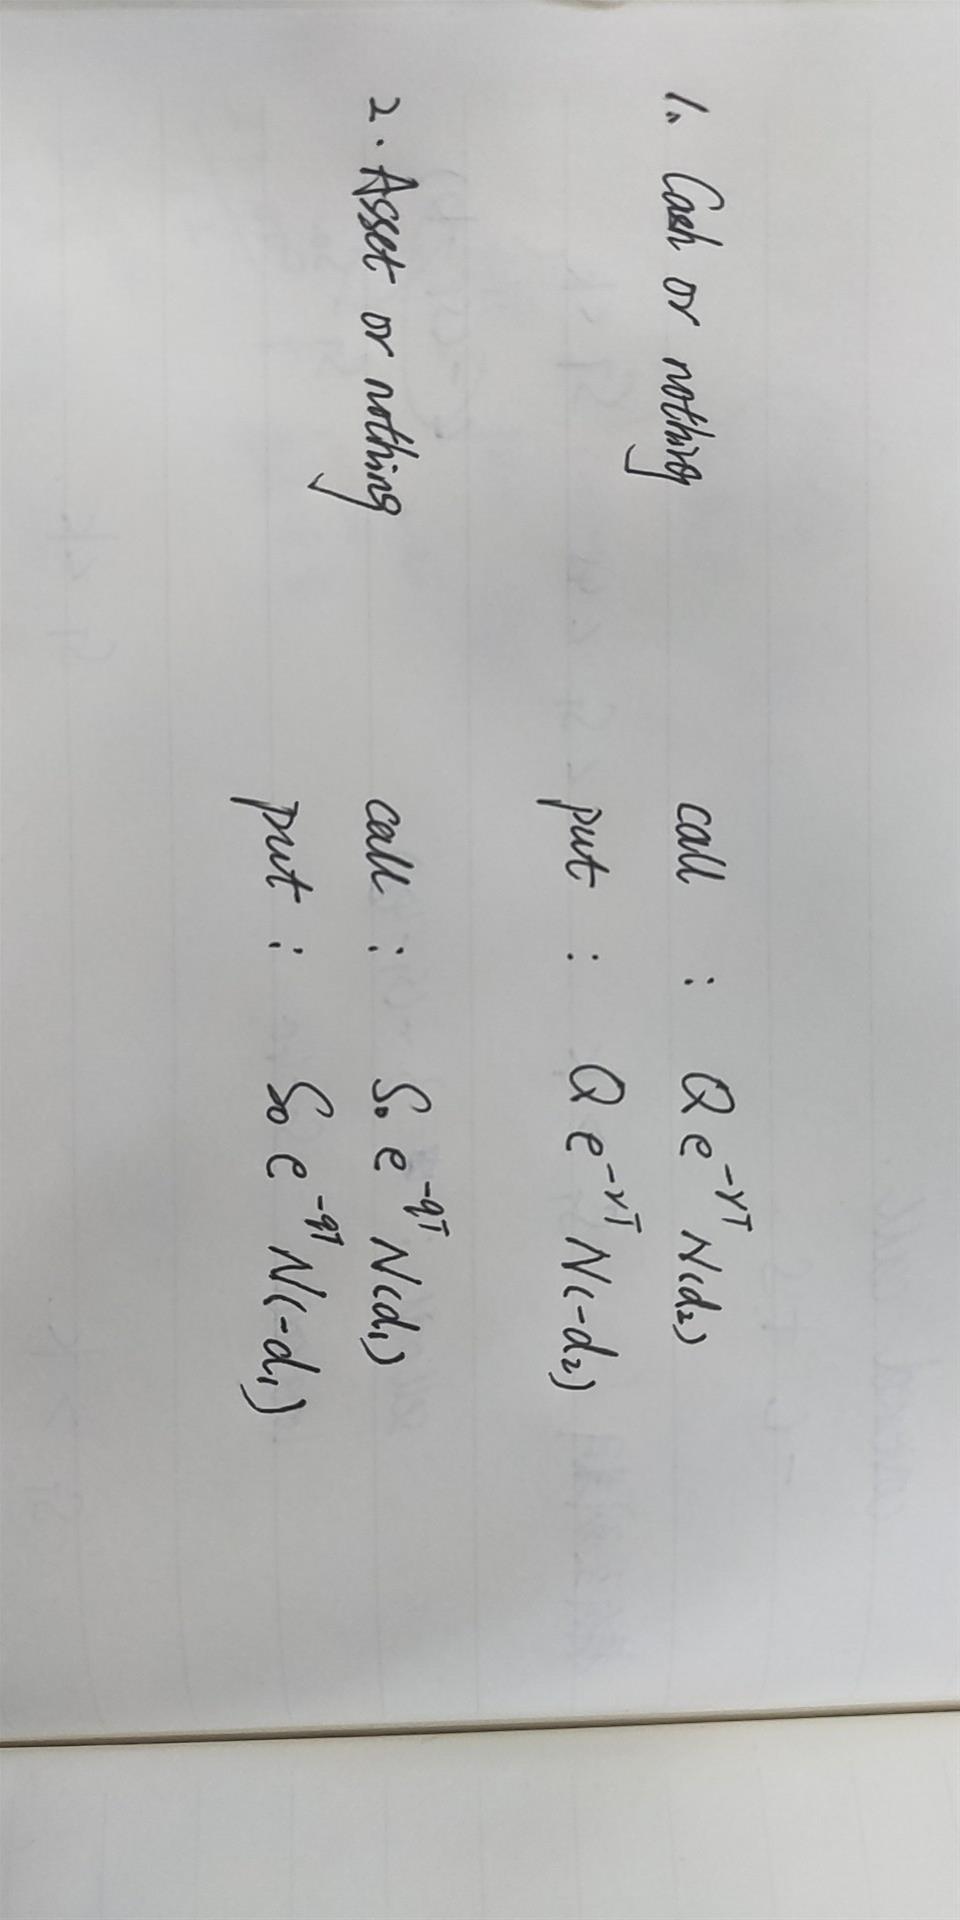 1. Cash or nothing call : Q e^{-rT} N(d₂)
put : Q e^{-rT} N(-d₂)
2. Asset or nothing call : S₀ e^{-qT} N(d₁)
put : S₀ e^{-qT} N(-d₁)